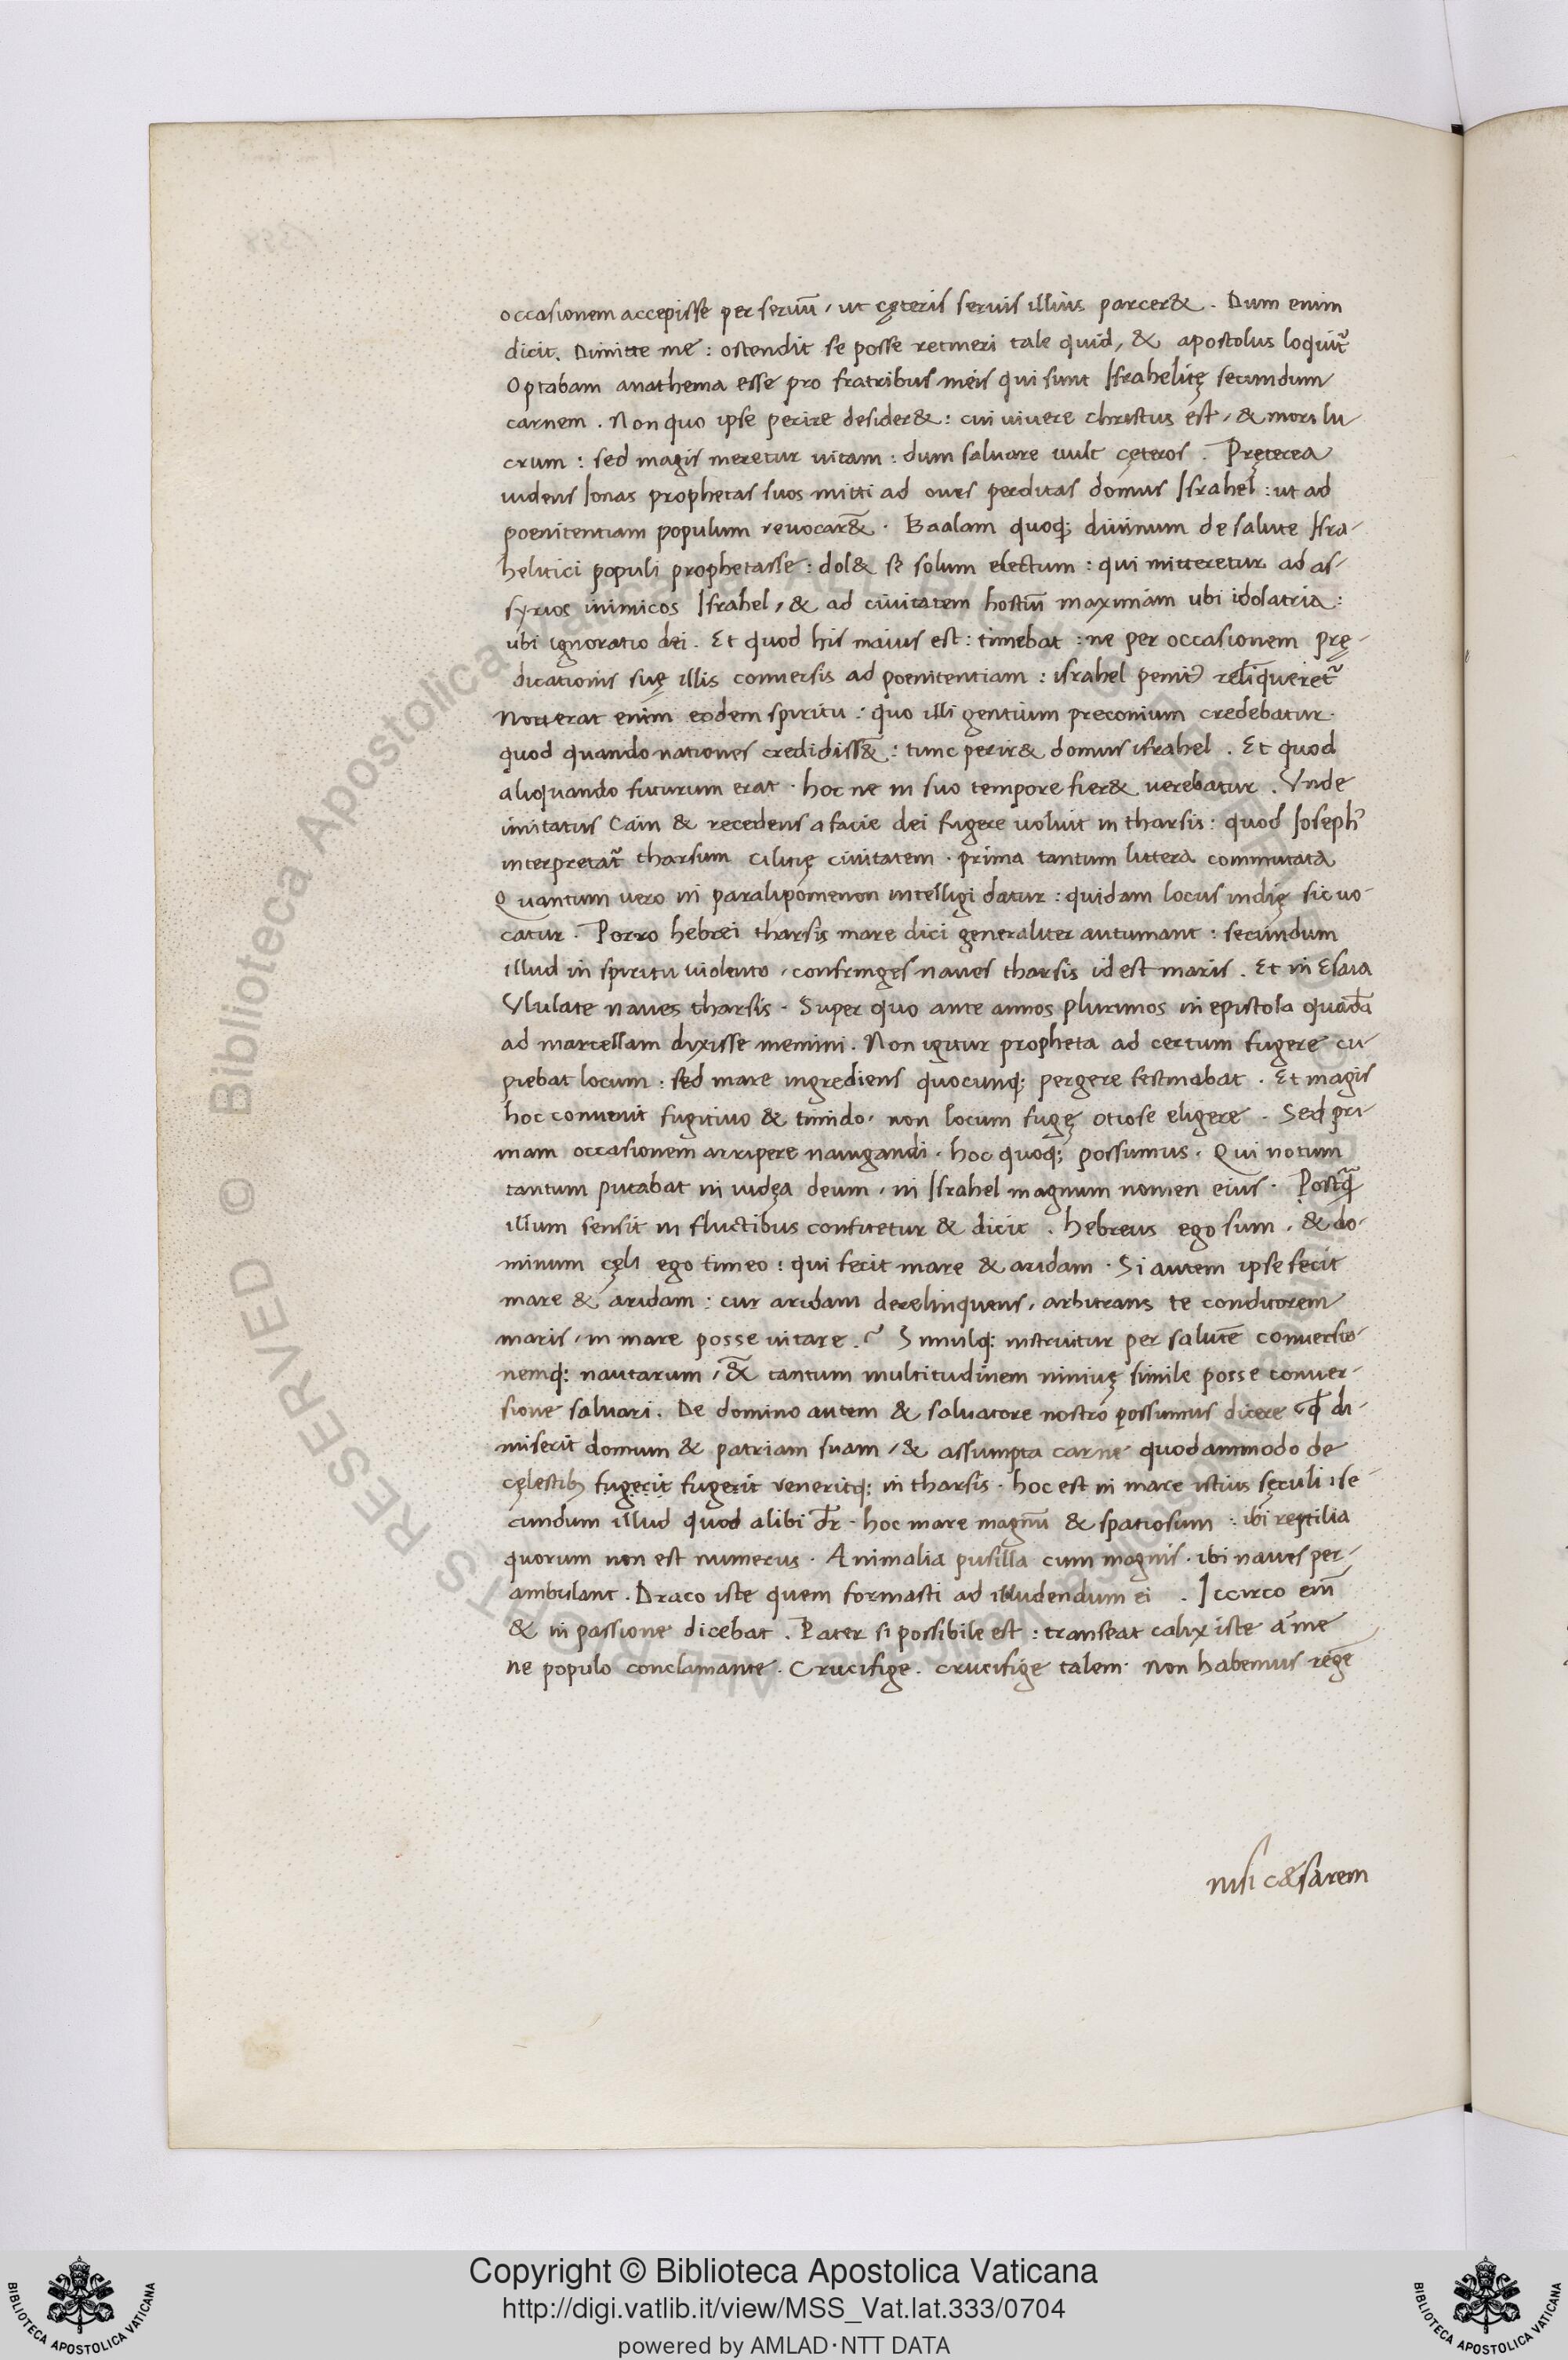 occasionem accepisse per seruū, ut cęteris seruis illius parcer&. Dum enim
dicit. Dimitte me: ostendit se posse retineri tale quid, & apostolus loquit̃
Optabam anathema esse pro fratribus meis qui sunt Israhelitę secundum
carnem. Non quo ipse perire desider&: cui uiuere christus est, & mori lu
crum: sed magis meretur uitam: dum saluare uult cęteros. Pręterea
uidens Ionas prophetas suos mitti ad oues perditas domus Israhel: ut ad
poenitentiam populum reuocar&̃. Baalam quoq; diuinum de salute Isra-
helitici populi prophetasse: dol& se solum electum: qui mitteretur ad as-
syrios inimicos Israhel, & ad ciuitatem hostiū maximam ubi idolatria:
ubi ignoratio dei. Et quod his maius est: timebat: ne per occasionem prę-
dicationis suę illis conuersis ad poenitentiam: israhel penit᾽ relīqueret̃
Nouerat enim eodem spiritu: quo illi gentium preconium credebatur.
quod quando nationes credidiss&̃: tunc perir& domus israhel. Et quod
aliquando futurum erat. hoc ne in suo tempore fier& verebatur. Vnde
imitatus Cain & recedens a facie dei fugere uoluit in tharsis: quod Ioseph᾽
interpretat̃ tharsum Cilicię ciuitatem. prima tantum littera commutata
Quantum vero in paralipomenon intelligi datur: quidam locus indię sic uo-
catur. Porro hebrei tharsis mare dici generaliter autumant: secundum
illud in spiritu uiolento, confringes naues tharsis id est maris. Et in Esaia
Vlulate naues tharsis. Super quo ante annos plurimos in epistola quadā
ad marcellam dixisse memini. Non igitur propheta ad certum fugere cu-
piebat locum: sed mare ingrediens quocunq; pergere festinabat. Et magis
hoc conuenit fugitiuo & timido, non locum fugę otiose eligere. Sed pri-
mam occasionem arripere nauigandi. hoc quoq; possumus. Qui notum
tantum putabat in iudęa deum, in Israhel magnum nomen eius. Postq̃
illum sensit in fluctibus confitetur & dicit. hebreus ego sum, & do-
minum cęli ego timeo: qui fecit mare & aridam. Si autem ipse fecit
mare & aridam: cur aridam derelinquens, arbitrans te conditorem
maris, in mare posse uitare? Simulq: instruitur per salutē conuersio-
nemq: nautarum, &̃ tantum multitudinem niniuę simile posse conuer-
sione saluari. De domino autem & saluatore nostro possumus dicere q̄d di-
miserit domum & patriam suam, & assumpta carne quodammodo de
cęlestib; fugerit fugerit veneritq: in tharsis. hoc est in mare istius sęculi, se-
cundum illud quod alibi dr̄. hoc mare magnū & spatiosum: ibi reptilia
quorum non est numerus. Animalia pusilla cum magnis. ibi naues per-
ambulant. Draco iste quem formasti ad illudendum ei. Iccirco eiū
& in passione dicebat. Pater si possibile est: transeat calix iste a me
ne populo conclamante. Crucifige. crucifige talem. Non habemus regē
nisi c&sarem
Copyright © Biblioteca Apostolica Vaticana
http://digi.vatlib.it/view/MSS_Vat.lat.333/0704
powered by AMLAD·NTT DATA